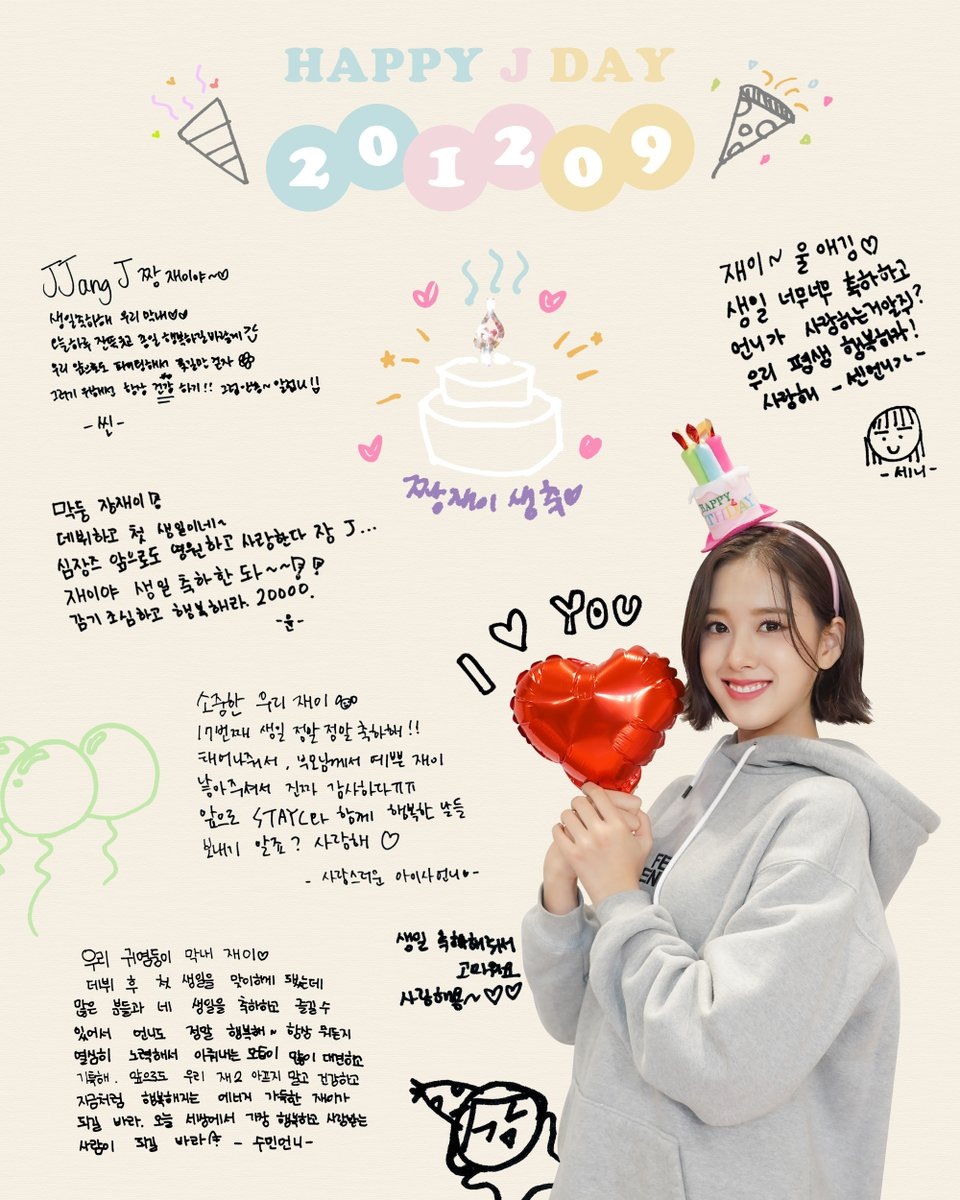 HAPPY J DAY
201209
JJang J 짱 재이야~♡
생일축하해 우리 막내♡♡
오늘하루 잔뜩웃고 종일 행복하길바랄게
우리 앞으로도 파이팅해서 꽃길만 걷자
그러기 위해서 항상 건강 하기!! 그럼안뇽~
-씬-
재이~ 울 애깅♡
생일 너무너무 축하하고
언니가 사랑하는거알쥐?
우리 평생 행복하자!
사랑해 -센언니가-
-세니-
짱재이 생축♡
HAPPY
BIRTHDAY
막둥 장재이!
데뷔하고 첫 생일이네~
심장즈 앞으로도 영원하고 사랑한다 장 J...
재이야 생일 축하한돠~~!!
감기 조심하고 행복해라. 20000.
-윤-
I ♡ YOU
소중한 우리 재이
17번째 생일 정말 정말 축하해!!
태어나줘서, 부모님께서 예쁜 재이
낳아주셔서 진짜 감사하다ㅠㅠ
앞으로 STAYC와 함께 행복한 날들
보내기 알죠? 사랑해 ♡
- 사랑스러운 아이사언니♡-
우리 귀염둥이 막내 재이♡
데뷔 후 첫 생일을 맞이하게 됐는데
많은 분들과 네 생일을 축하하고 즐길수
있어서 언니도 정말 행복해~ 항상 뭐든지
열심히 노력해서 이뤄내는 모습이 많이 대견하고
기특해. 앞으로도 우리 재2 아프지 말고 건강하고
지금처럼 행복해지는 에너지 가득한 재이가
되길 바라. 오늘 세상에서 가장 행복하고 사랑받는
사람이 되길 바라! - 수민언니-
생일 축하해줘서
고마워요
사랑해용~♡♡